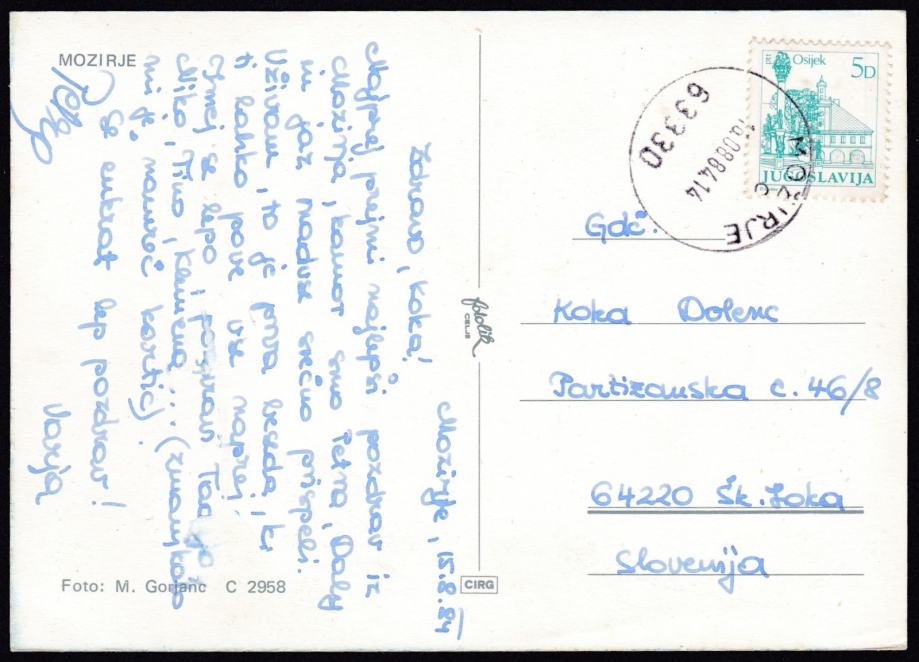 MOZIRJE
Mozirje, 15.8.84
Zdravo, Koka!
Najprej prijmi najlepši pozdrav iz
Mozirja, kamor smo Petra, Daly
in jaz nadvse srečno prispeli.
Uživam, to je prva beseda, ki
ti lahko pove vse naprej.
Imej se lepo, pozdrav
Niko, Tino, Klemena... (zmanjkalo
mi je namreč kartic).
Še enkrat lep pozdrav!
Varja
Petra
Foto: M. Gorjanc C 2958
fotolik
CELJE
CIRG
PTT Osijek 5D
JUGOSLAVIJA
63330 MOZIRJE
.08.84.14
Gdč.
Koka Dolenc
Partizanska c. 46/8
64220 Šk. Loka
Slovenija